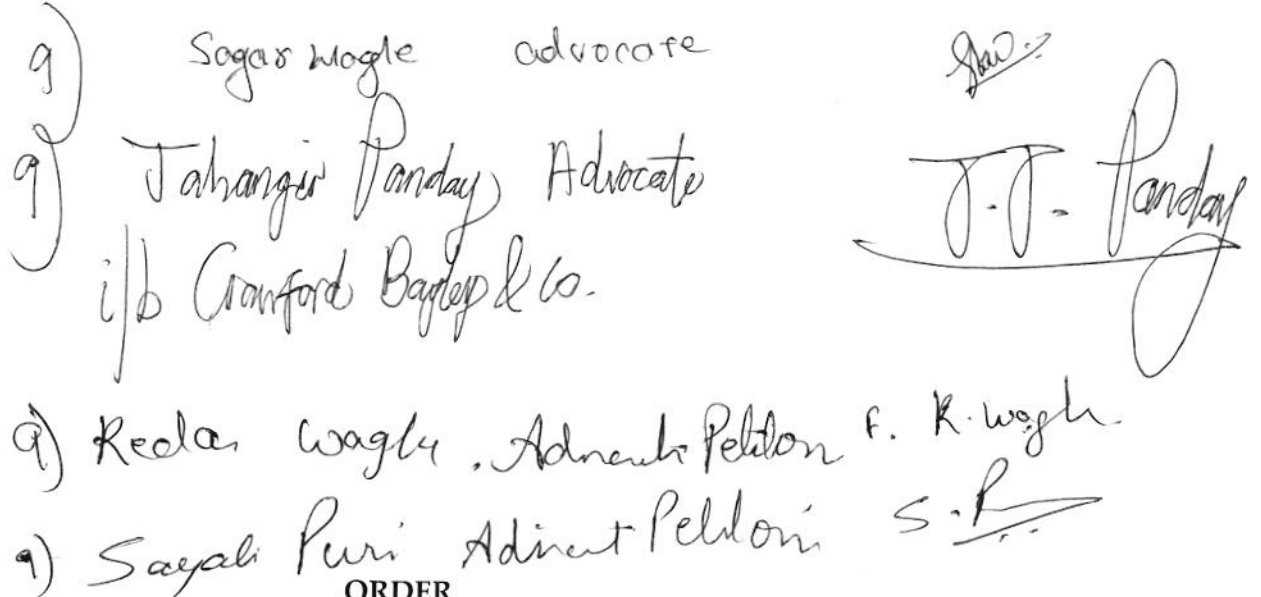 9) Sagar Wagle advocate
9) Jahangir Panday Advocate J.J. Panday
i/b Crawford Bayley & Co.
9) Kedar Wagle. Advocate Petition F. K. Wagle
9) Sayali Puri Advocate Petition S.P
ORDER